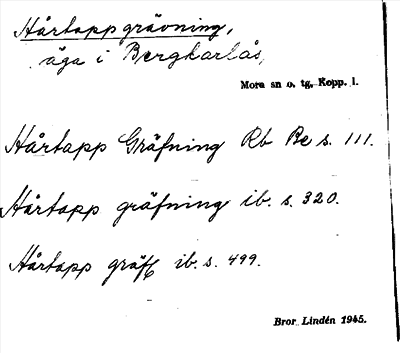 Hårtapp grävning,
äga i Bergkarlås,
Mora sn o. tg, Kopp. l.
Hårtapp Gräfning Rb Be s. 111.
Hårtapp gräfning ib. s. 320.
Hårtapp gräff ib. s. 499.
Bror Lindén 1945.